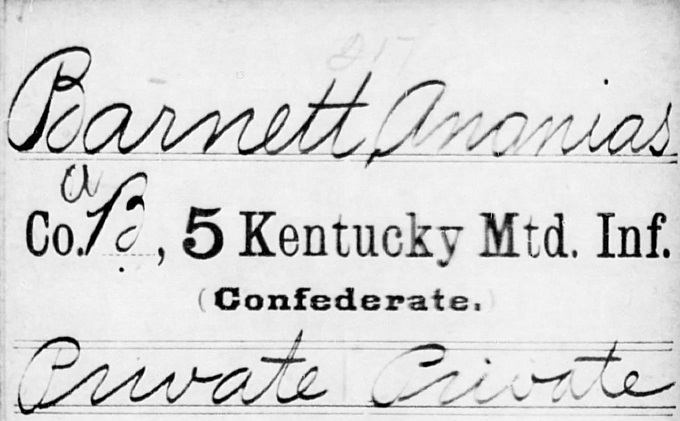 217
Barnett, Ananias
a
Co. B, 5 Kentucky Mtd. Inf.
(Confederate.)
Private Private